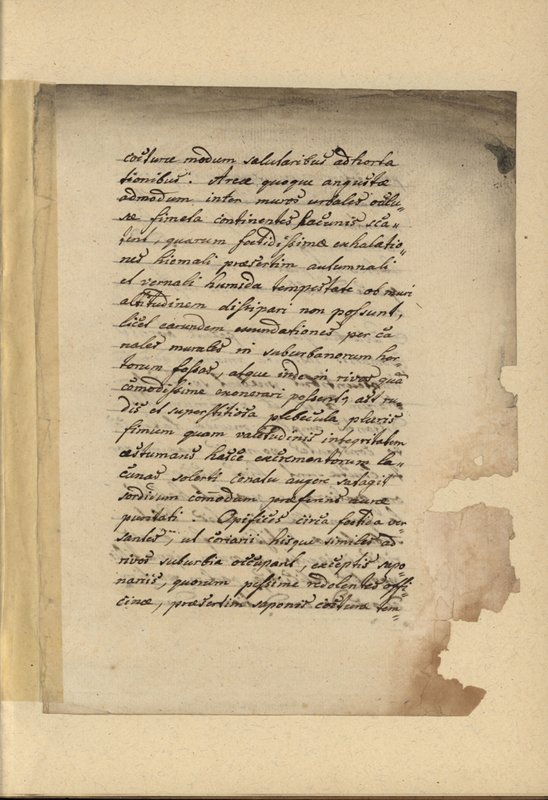 cocturæ modum salutaribus adhorta
tionibus. Areæ quoque angustæ
admodum, inter muros urbales oclu„
sæ fimeta continentes lacunis sca„
tent, quarum foetidissimæ exhalatio„
nes hiemali præsertim autumnali
et vernali humida tempestate ob muri
altitudinem dissipari non possunt,
licet earundem emundationes per ca
nales murales in suburbanorum hor„
torum fossas, atque inde in rivos quā
comodissime exonerari possent; ast ru„
dis et superstitiosa plebecula pluris
fimum quam valetudinis integritatem
æstumans hasce excrementorum la„
cunas solerti conatu augere satagit
sordium comodum præferens auræ
puritati. Opifices circa foetida ver
santes, ut coriarii hisque similes ad
rivos suburbia occupant, exceptis sapo„
nariis, quorum pessime redolentes offi„
cinæ, præsertim saponis cocturæ tem„